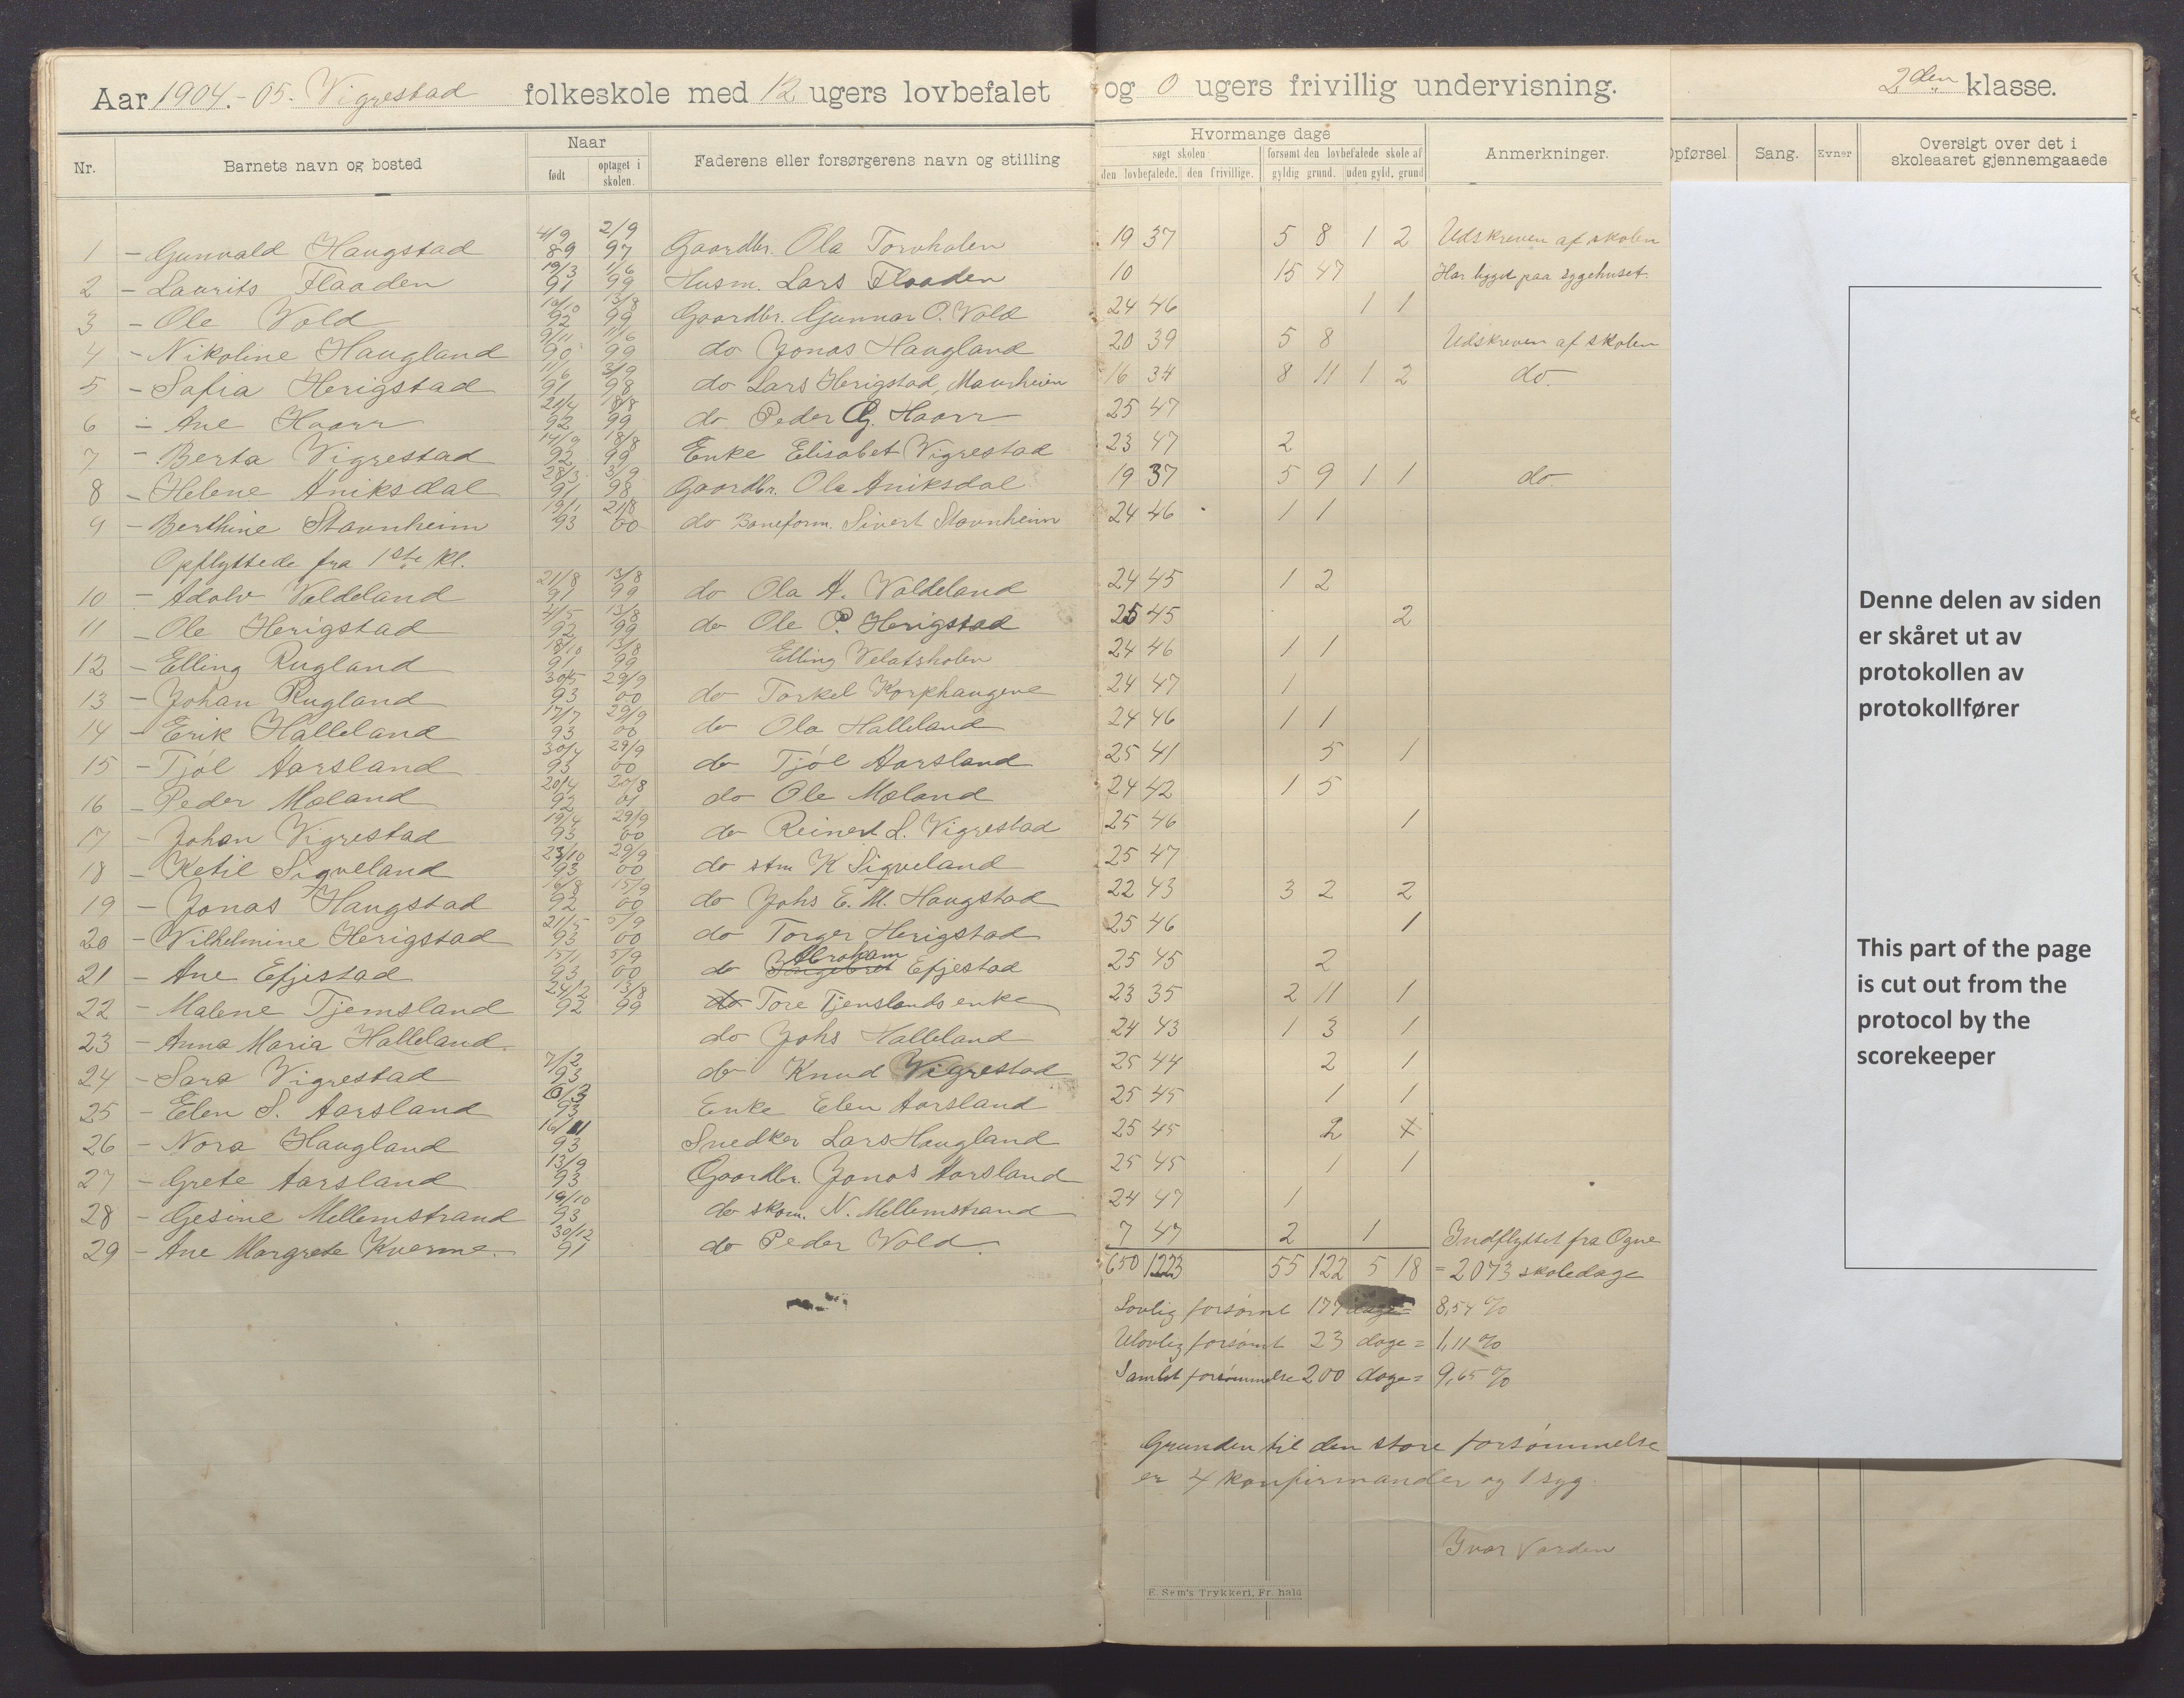 Aar 1904.-05. Vigrestad folkeskole med 12 ugers lovbefalet og 0 ugers frivillig undervisning. 2den klasse.
Nr. Barnets navn og bosted Naar født optaget i skolen. Faderens eller forsørgerens navn og stilling Hvormange dage søgt skolen den lovbefalede. den frivillige. forsømt den lovbefalede skole af gyldig grund. uden gyld. grund Anmerkninger. Opførsel. Sang. Evner Oversigt over det i skoleaaret gjennemgaaede
1 - Gunvald Haugstad 4/9 89 2/9 97 Gaardbr. Ola Torvholen 19 37 5 8 1 2 Udskreven af skolen
2 - Laurits Flaaden 19/3 91 1/6 99 Husm. Lars Flaaden 10 15 47 Har ligget paa sygehuset.
3 - Ole Vold 10/10 92 13/8 99 Gaardbr. Gunnar O. Vold 24 46 1 1
4 - Nikoline Haugland 9/11 90 11/6 99 do Jonas Haugland 20 39 5 8 Udskreven af skolen
5 - Sofia Herigstad 11/6 91 3/9 98 do Lars Herigstad, Maurheien 16 34 8 11 1 2 do.
6 - Ane Haarr 21/4 92 18/8 99 do Peder G. Haarr 25 47
7 - Berta Vigrestad 14/9 92 18/8 99 Enke Elisabet Vigrestad 23 47 2
8 - Helene Aniksdal 28/3 91 3/9 98 Gaardbr. Ola Aniksdal 19 37 5 9 1 1 do.
9 - Berthine Stavnheim 19/1 93 21/8 00 do Baneform. Sivert Stavnheim 24 46 1 1
Opflyttede fra 1ste kl.
10 - Adolv Valdeland 21/8 91 13/8 99 do Ola A. Valdeland 24 45 1 2
11 - Ole Herigstad 4/5 92 13/8 99 do Ole P. Herigstad 25 45 2
12 - Elling Rugland 18/10 91 13/8 99 Elling Velatsholen 24 46 1 1
13 - Johan Rugland 30/5 93 29/9 00 do Torkel Korphaugene 24 47 1
14 - Erik Halleland 17/7 93 29/9 00 do Ola Halleland 24 46 1 1
15 - Tjøl Aarsland 30/4 93 29/9 00 do Tjøl Aarsland 25 41 5 1
16 - Peder Møland 20/4 92 20/8 01 do Ole Møland 24 42 1 5
17 - Johan Vigrestad 19/4 93 29/9 00 do Reinert L. Vigrestad 25 46 1
18 - Ketil Sigveland 23/10 93 29/9 00 do stm K Sigveland 25 47
19 - Jonas Haugstad 16/8 92 15/9 00 do Johs E. M. Haugstad 22 43 3 2 2
20 - Vilhelmine Herigstad 21/5 93 5/9 00 do Torger Herigstad 25 46 1
21 - Ane Efjestad 15/1 93 5/9 00 do Abraham Efjestad 25 45 2
22 - Malene Tjemsland 24/12 92 13/8 99 do Tore Tjenslands enke 23 35 2 11 1
23 - Anna Maria Halleland. do Johs Halleland 24 43 1 3 1
24 - Sara Vigrestad 7/2 93 do Knud Vigrestad 25 44 2 1
25 - Elen S. Aarsland 6/3 93 Enke Elen Aarsland 25 45 1 1
26 - Nora Haugland 16/11 93 Snedker Lars Haugland 25 45 2 x
27 - Grete Aarsland 13/9 93 Gaardbr. Jonas Aarsland 25 45 1 1
28 - Gesine Mellemstrand 19/10 93 do skom. N. Mellemstrand 24 47 1
29 - Ane Margrete Kverme. 30/12 91 do Peder Vold. 7 47 2 1 Indflyttet fra Ogne
650 1223 55 122 5 18 = 2073 skoledage
Lovlig forsømt 177 dage = 8,54 %
Ulovlig forsømt 23 dage = 1,11 %
Samlet forsømmelse 200 dage = 9,65 %
Grunden til den store forsømmelse
er 4 konfirmander og 1 syg.
Ivar Varden
E. Sem's Trykkeri, Fr. hald
Denne delen av siden
er skåret ut av
protokollen av
protokollfører
This part of the page
is cut out from the
protocol by the
scorekeeper